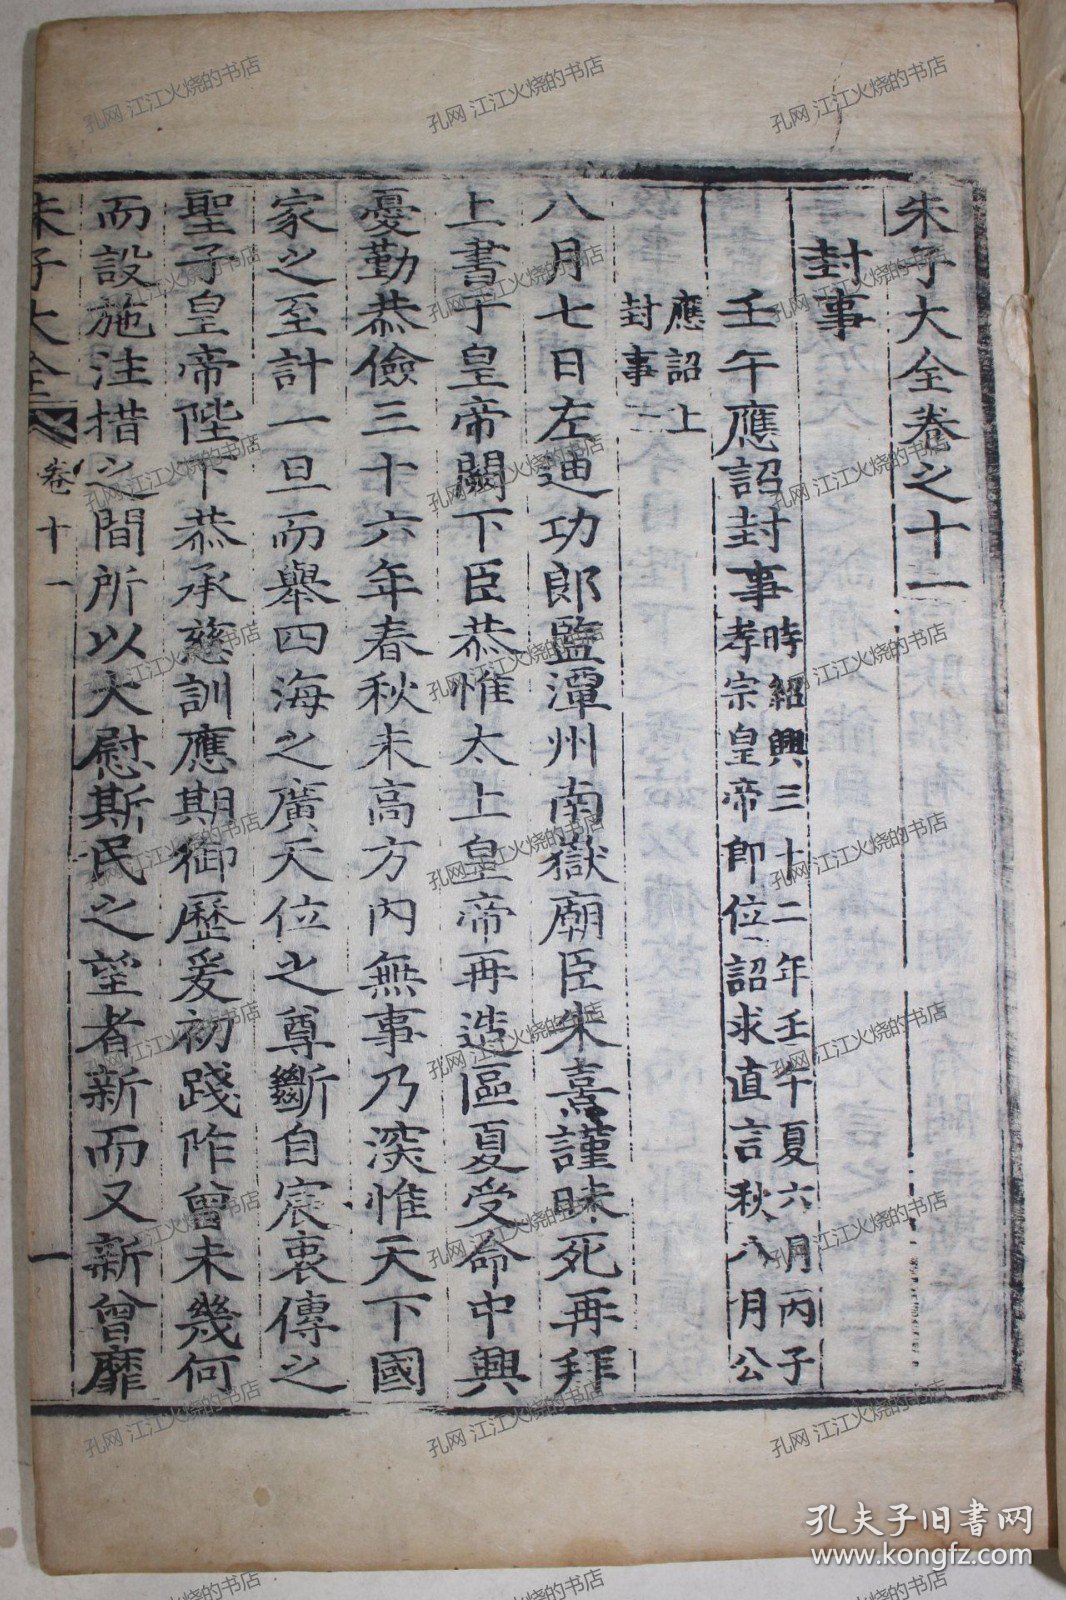 朱子大全卷之十一
封事
壬午應詔封事時紹興三十二年壬午夏六月丙子
孝宗皇帝卽位詔求直言秋八月公
應詔上
封事
八月七日左迪功郎監潭州南嶽廟臣朱熹謹昧死再拜
上書于皇帝闕下臣恭惟太上皇帝再造區夏受命中興
憂勤恭儉三十六年春秋未高方內無事乃深惟天下國
家之至計一旦而舉四海之廣天位之尊斷自宸衷傳之
聖子皇帝陛下恭承慈訓應期御歷爰初踐阼曾未幾何
而設施注措之間所以大慰斯民之望者新而又新曾靡
朱子大全 卷十一 一
孔网 江江火烧的书店
孔夫子旧书网
www.kongfz.com